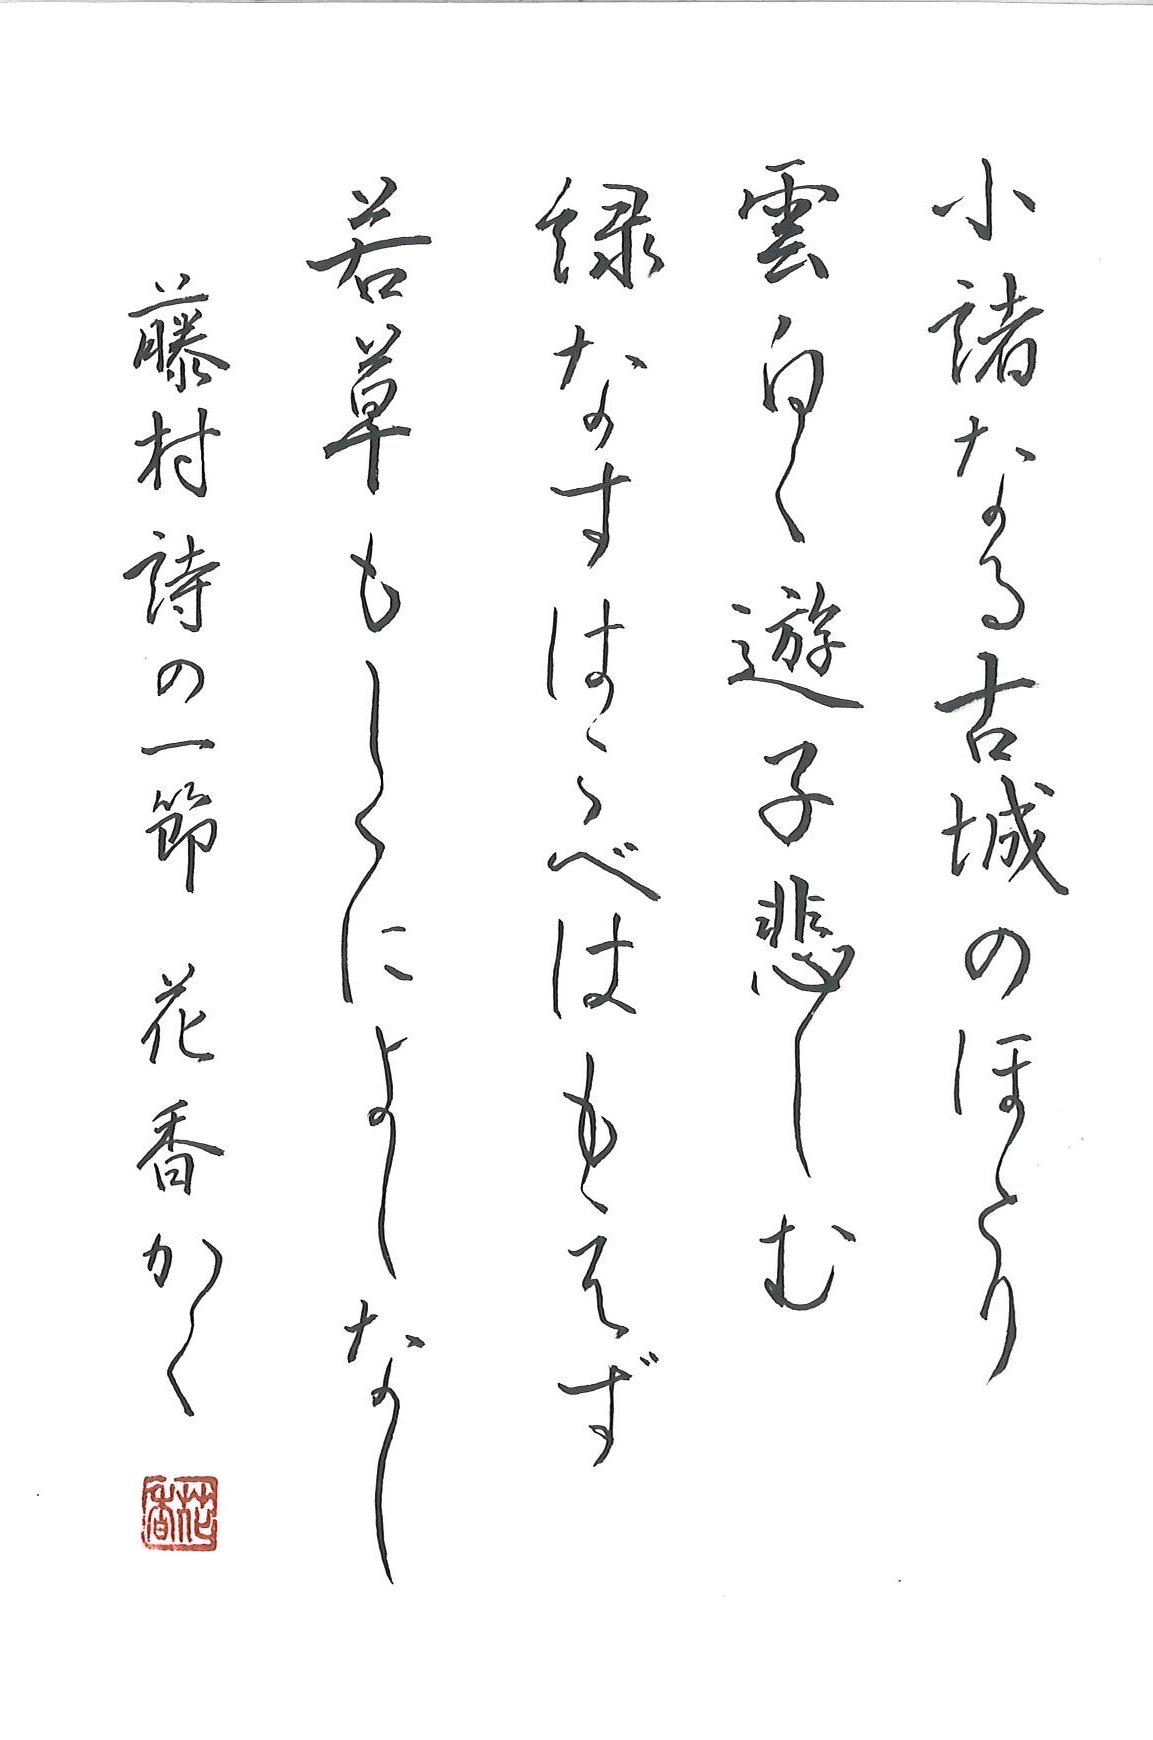 小諸なる古城のほとり
雲白く遊子悲しむ
緑なすはこべはもえず
若草もしくによしなし
藤村詩の一節 花香かく
花香